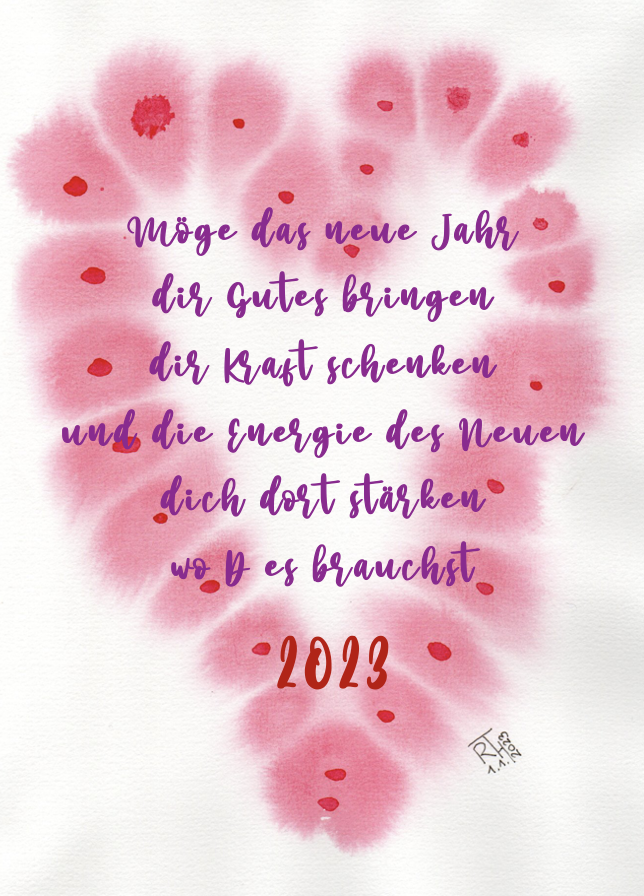 Möge das neue Jahr
dir Gutes bringen
dir Kraft schenken
und die Energie des Neuen
dich dort stärken
wo D es brauchst
2023
RTH
1.1.2023